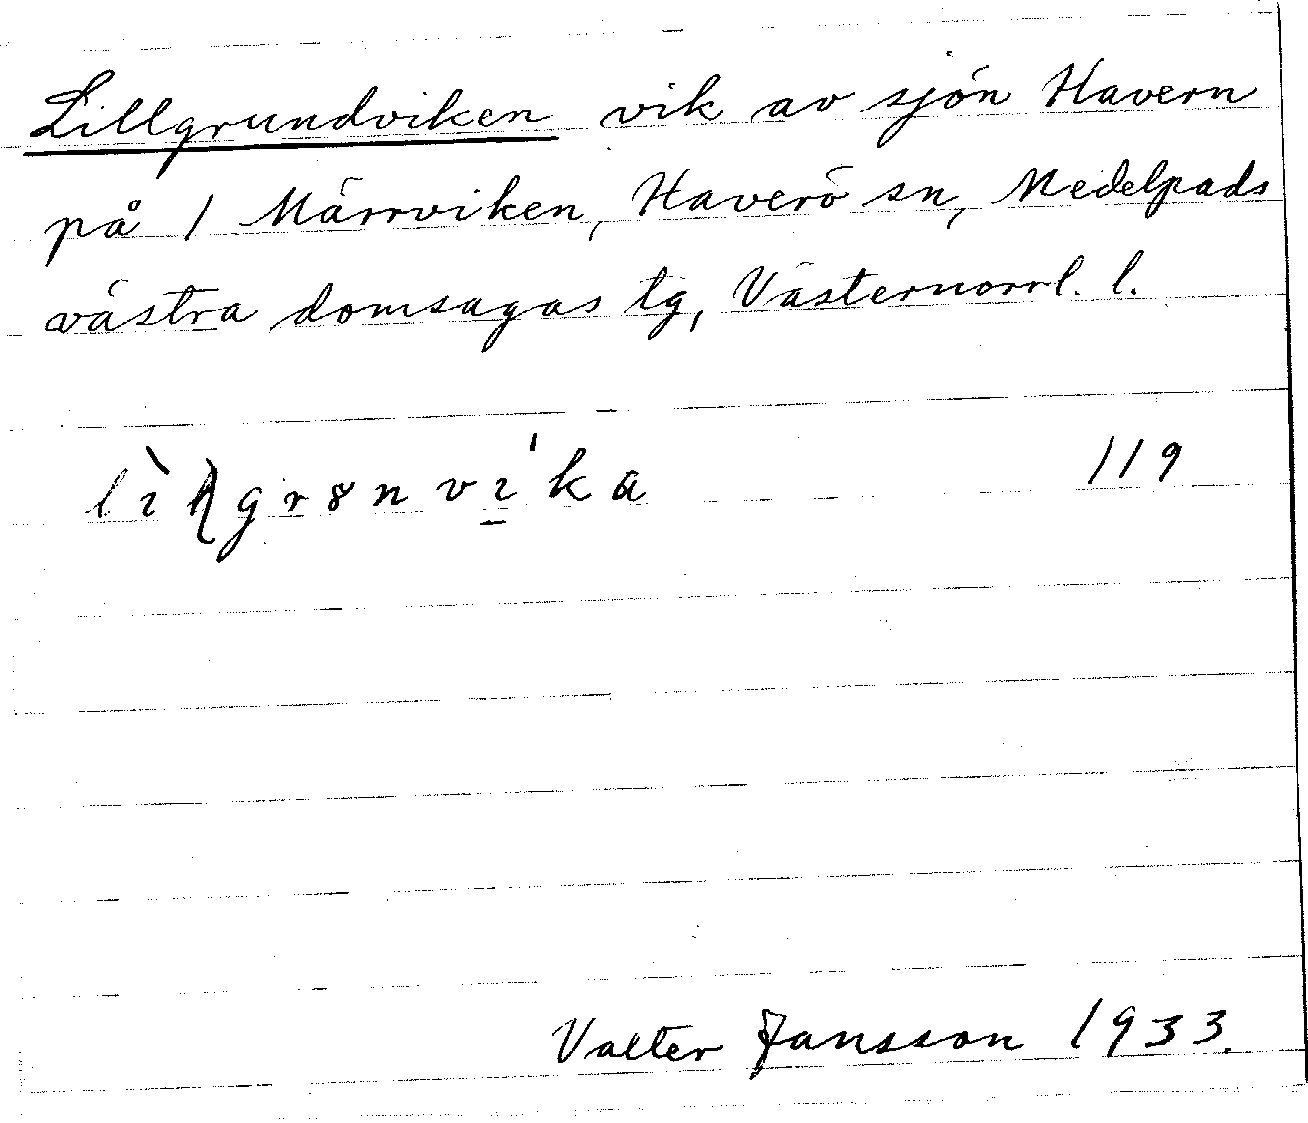 Lillgrundviken vik av sjön Havern
på 1 Märrviken, Haverö sn, Medelpads
västra domsagas tg, Västernorrl. l.
119
Valter Jansson 1933.